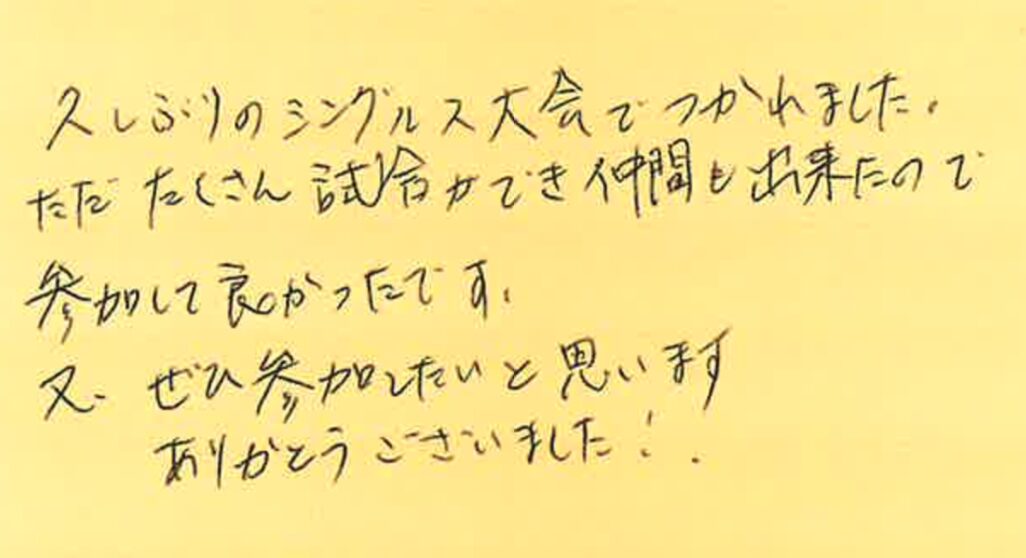 久しぶりのシングルス大会でつかれました。
ただ たくさん 試合ができ 仲間も出来たので
参加して良かったです。
又、ぜひ参加したいと思います
ありがとうございました!